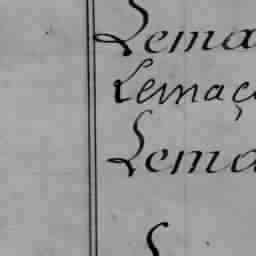 Lema
Lemaç
Lema